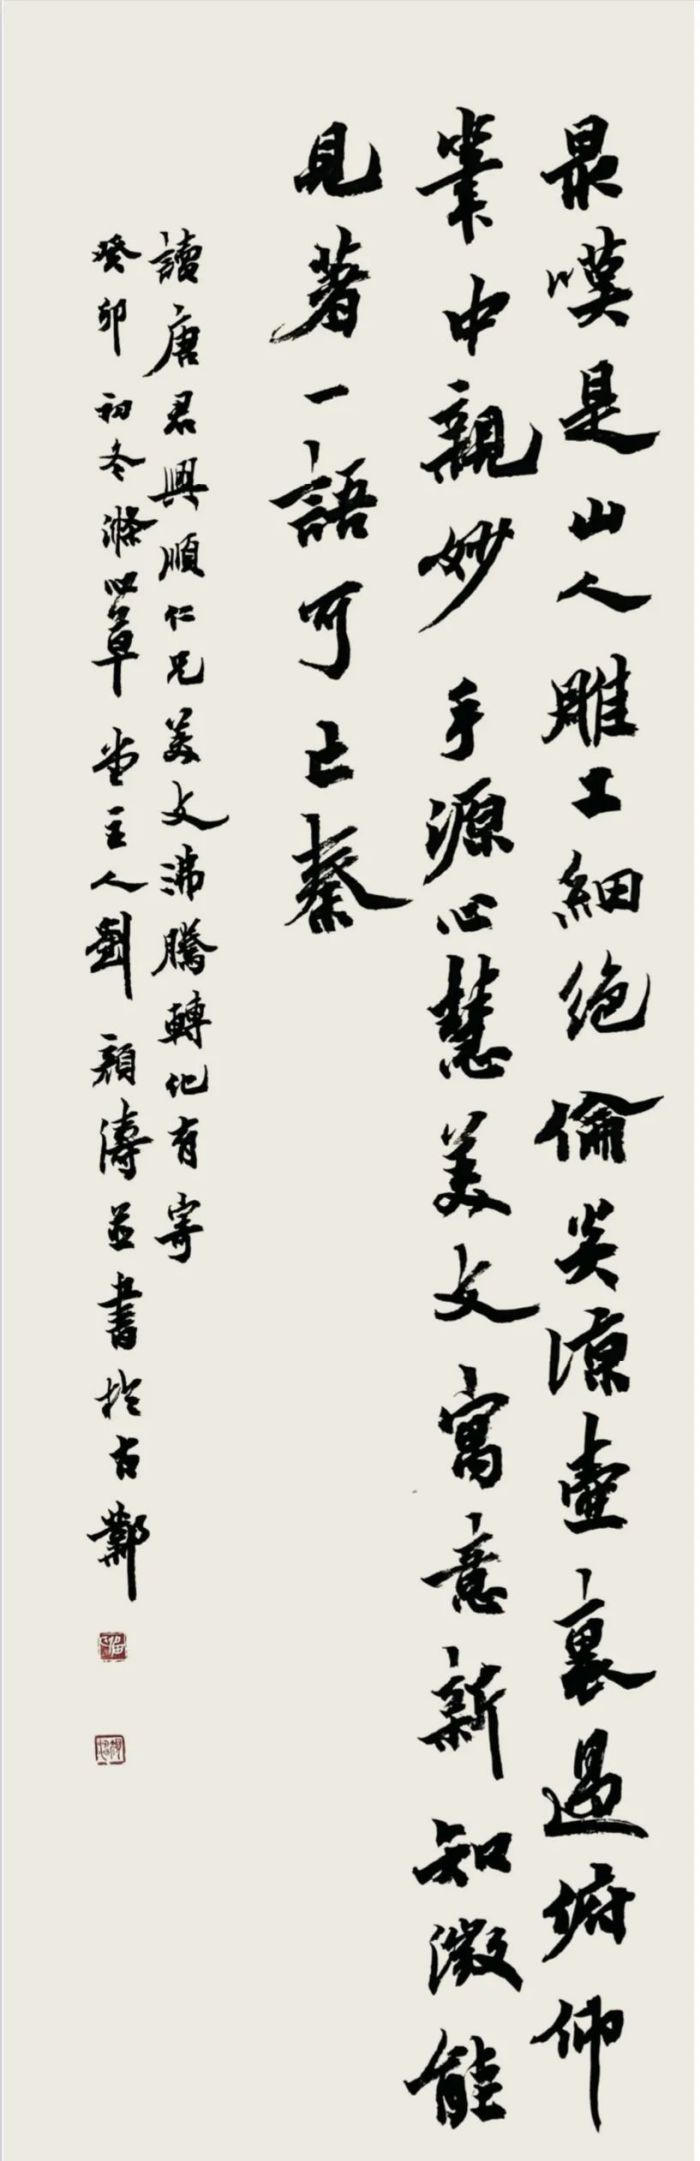 最嘆是山人雕工細絶倫炎涼壺裏過俯仰
業中親妙手源心慧美文寓意新知微能
見著一語可亡秦
讀唐君興順仁兄美文沸騰轉化有寄
癸卯初冬滌心草堂主人劉顏濤並書於古鄴